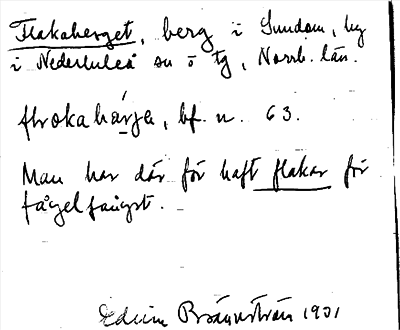 Flakaberget, berg i Sundom, by
i Nederluleå sn o tg, Norrb. län.
flrokabárja, bf. n. 63.
Man har där för haft flakar för
fågelfångst.
Edvin Brännström 1931